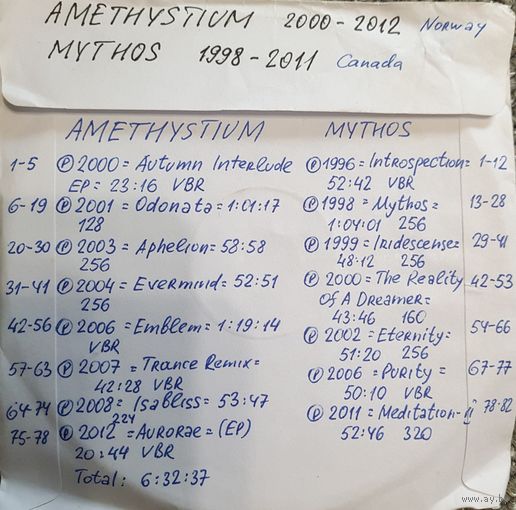 AMETHYSTIUM 2000-2012 Norway
MYTHOS 1998-2011 Canada
AMETHYSTIUM
1-5 Ⓟ 2000 = Autumn Interlude
EP = 23:16 VBR
6-19 Ⓟ 2001 = Odonata = 1:01:17
128
20-30 Ⓟ 2003 = Aphelion = 58:58
256
31-41 Ⓟ 2004 = Evermind = 52:51
256
42-56 Ⓟ 2006 = Emblem = 1:19:14
VBR
57-63 Ⓟ 2007 = Trance Remix =
42:28 VBR
64-74 Ⓟ 2008 = Isabliss = 53:47
224
75-78 Ⓟ 2012 = Aurorae = (EP)
20:44 VBR
Total: 6:32:37
MYTHOS
Ⓟ 1996 = Introspection = 1-12
52:42 VBR
Ⓟ 1998 = Mythos = 13-28
1:04:01 256
Ⓟ 1999 = Iridescense = 29-41
48:12 256
Ⓟ 2000 = The Reality 42-53
Of A Dreamer =
43:46 160
Ⓟ 2002 = Eternity = 54-66
51:20 256
Ⓟ 2006 = Purity = 67-77
50:10 VBR
Ⓟ 2011 = Meditation = 78-82
52:46 320